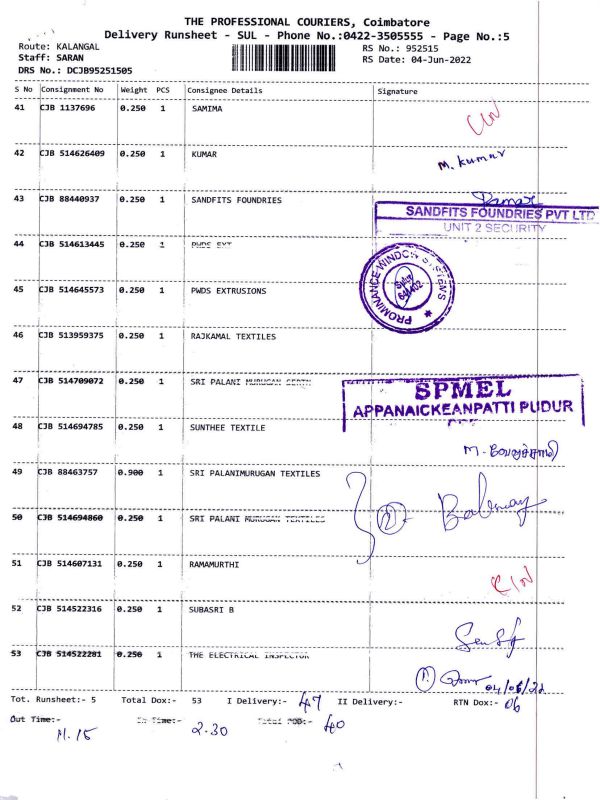 THE PROFESSIONAL COURIERS, Coimbatore
Delivery Runsheet - SUL - Phone No.:0422-3505555 - Page No.:5
Route: KALANGAL RS No.: 952515
Staff: SARAN RS Date: 04-Jun-2022
DRS No.: DCJB95251505
S No Consignment No Weight PCS Consignee Details Signature
41 CJB 1137696 0.250 1 SAMIMA
42 CJB 514626409 0.250 1 KUMAR M. Kumar
43 CJB 88440937 0.250 1 SANDFITS FOUNDRIES
SANDFITS FOUNDRIES PVT LTD
UNIT 2 SECURITY
44 CJB 514613445 0.250 1 PWDS EXT
PROMINANCE WINDOW SYSTEMS
Sulur
641402
45 CJB 514645573 0.250 1 PWDS EXTRUSIONS
46 CJB 513959375 0.250 1 RAJKAMAL TEXTILES
47 CJB 514709072 0.250 1 SRI PALANI MURUGAN
SPMEL
APPANAICKEANPATTI PUDUR
48 CJB 514694785 0.250 1 SUNTHEE TEXTILE
49 CJB 88463757 0.900 1 SRI PALANIMURUGAN TEXTILES
50 CJB 514694860 0.250 1 SRI PALANI MURUGAN TEXTILES
2
51 CJB 514607131 0.250 1 RAMAMURTHI
52 CJB 514522316 0.250 1 SUBASRI B
53 CJB 514522281 0.250 1 THE ELECTRICAL INSPECTOR
04/06/22
Tot. Runsheet:- 5 Total Dox:- 53 I Delivery:- 47 II Delivery:- RTN Dox:- 06
Out Time:- In Time:- Total POD:- 40
11.15 2.30